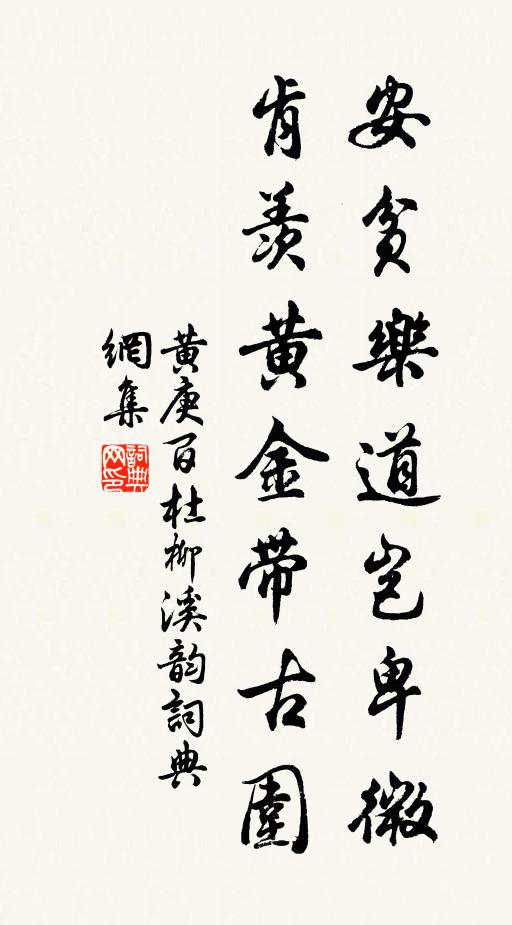 安貧樂道豈卑微
肯羨黃金帶古圍
黃庚 百杜柳溪韵 詞典
網集
詞典網印